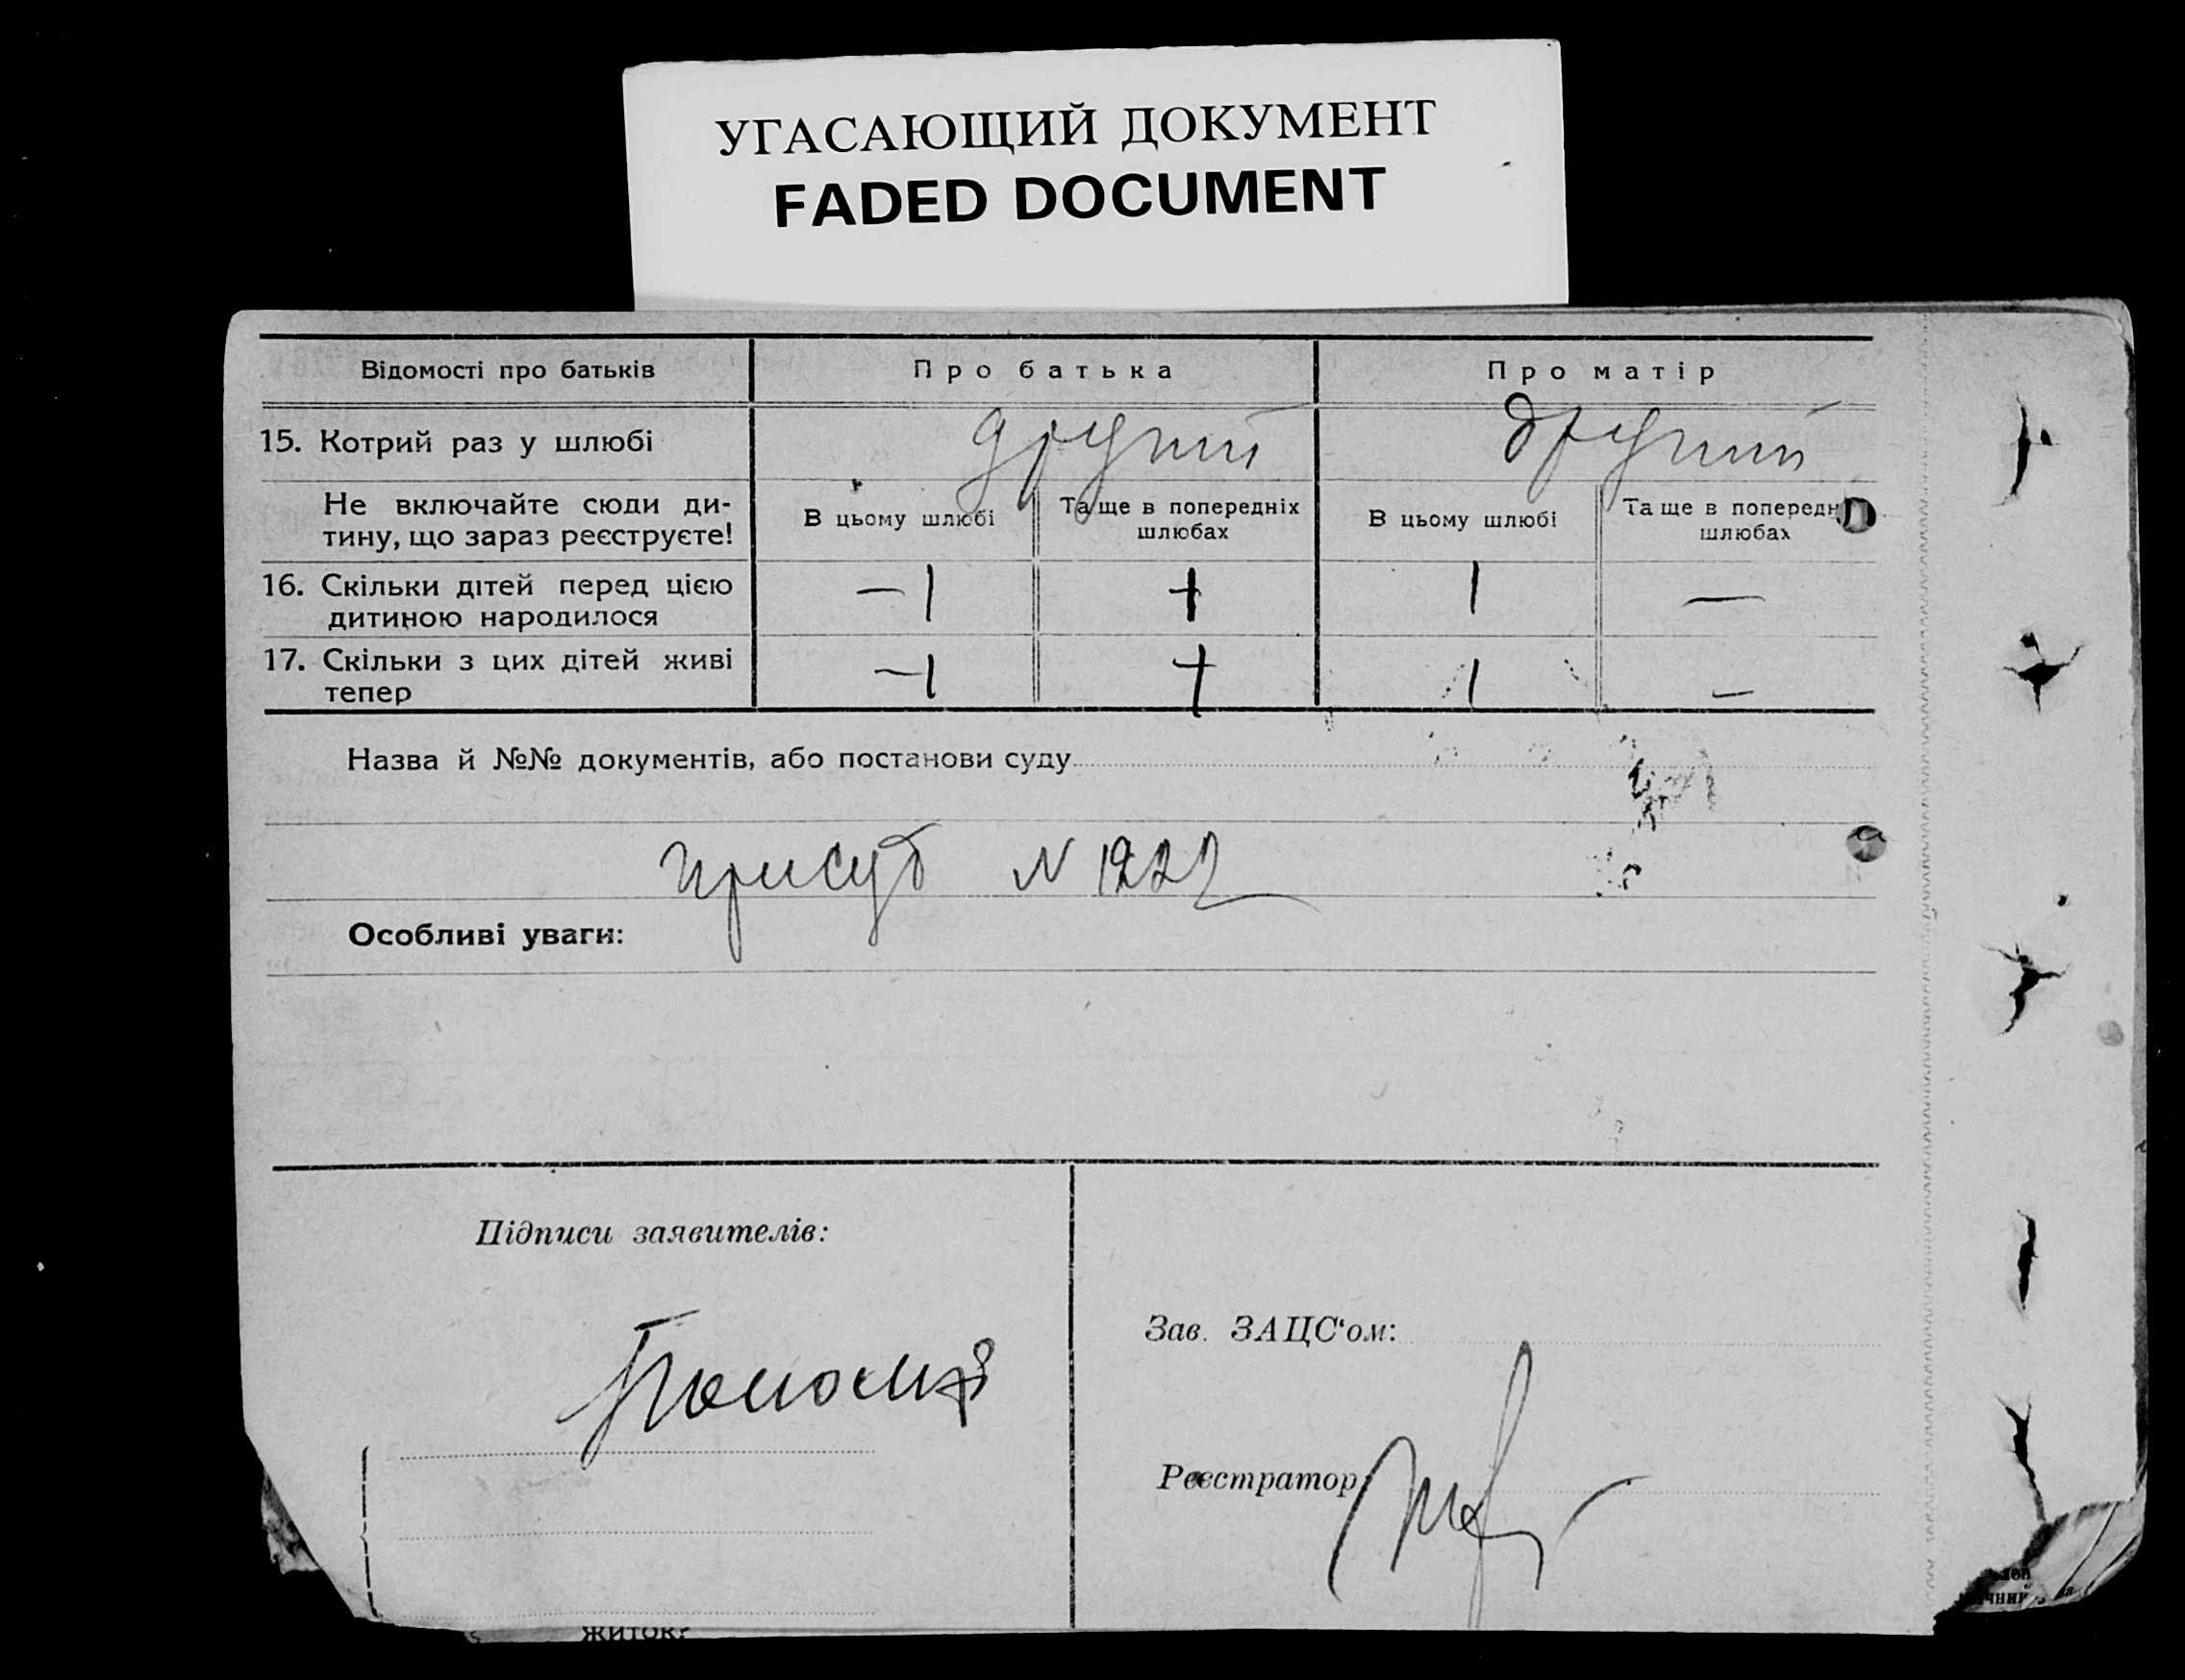 УГАСАЮЩИЙ ДОКУМЕНТ
FADED DOCUMENT
Відомості про батьків
Про батька
Про матір
15. Котрий раз у шлюбі
другий
другий
Не включайте сюди ди-
тину, що зараз реєструєте!
В цьому шлюбі
Та ще в попередніх
шлюбах
В цьому шлюбі
Та ще в попередн
шлюбах
16. Скільки дітей перед цією
дитиною народилося
— 1
+
1
—
17. Скільки з цих дітей живі
тепер
— 1
+
1
—
Назва й №№ документів, або постанови суду
присуд N 1222
Особливі уваги:
Підписи заявителів:
Зав. ЗАЦС‘ом:
Реєстратор
житок?